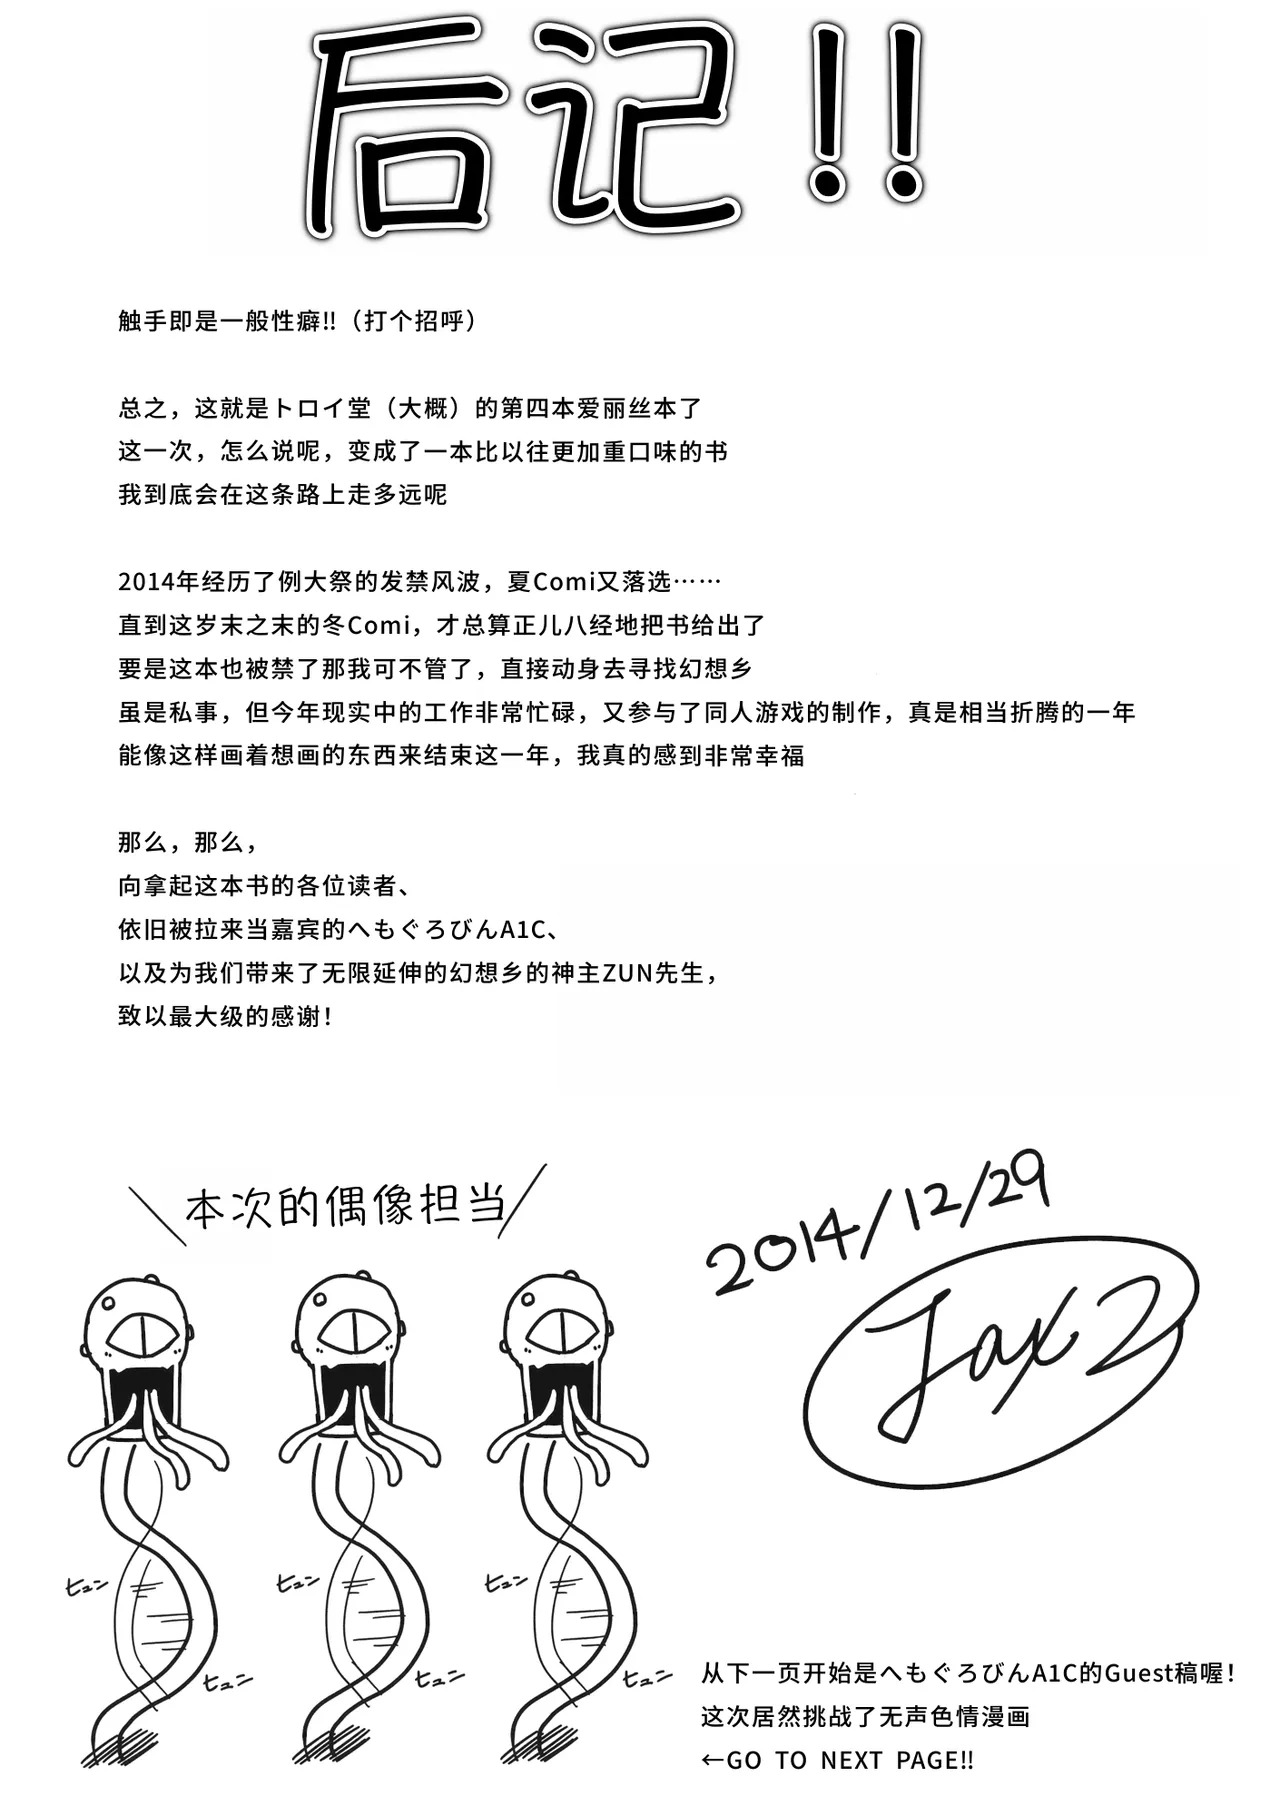 后记!!
触手即是一般性癖!!（打个招呼）
总之，这就是トロイ堂（大概）的第四本爱丽丝本了
这一次，怎么说呢，变成了一本比以往更加重口味的书
我到底会在这条路上走多远呢
2014年经历了例大祭的发禁风波，夏Comi又落选……
直到这岁末之末的冬Comi，才总算正儿八经地把书给出了
要是这本也被禁了那我可不管了，直接动身去寻找幻想乡
虽是私事，但今年现实中的工作非常忙碌，又参与了同人游戏的制作，真是相当折腾的一年
能像这样画着想画的东西来结束这一年，我真的感到非常幸福
那么，那么，
向拿起这本书的各位读者、
依旧被拉来当嘉宾的へもぐろびんA1C、
以及为我们带来了无限延伸的幻想乡的神主ZUN先生，
致以最大级的感谢！
本次的偶像担当
2014/12/29
Jax2
ヒュン
ヒュン
ヒュン
ヒュン
ヒュン
ヒュン
从下一页开始是へもぐろびんA1C的Guest稿喔！
这次居然挑战了无声色情漫画
←GO TO NEXT PAGE!!